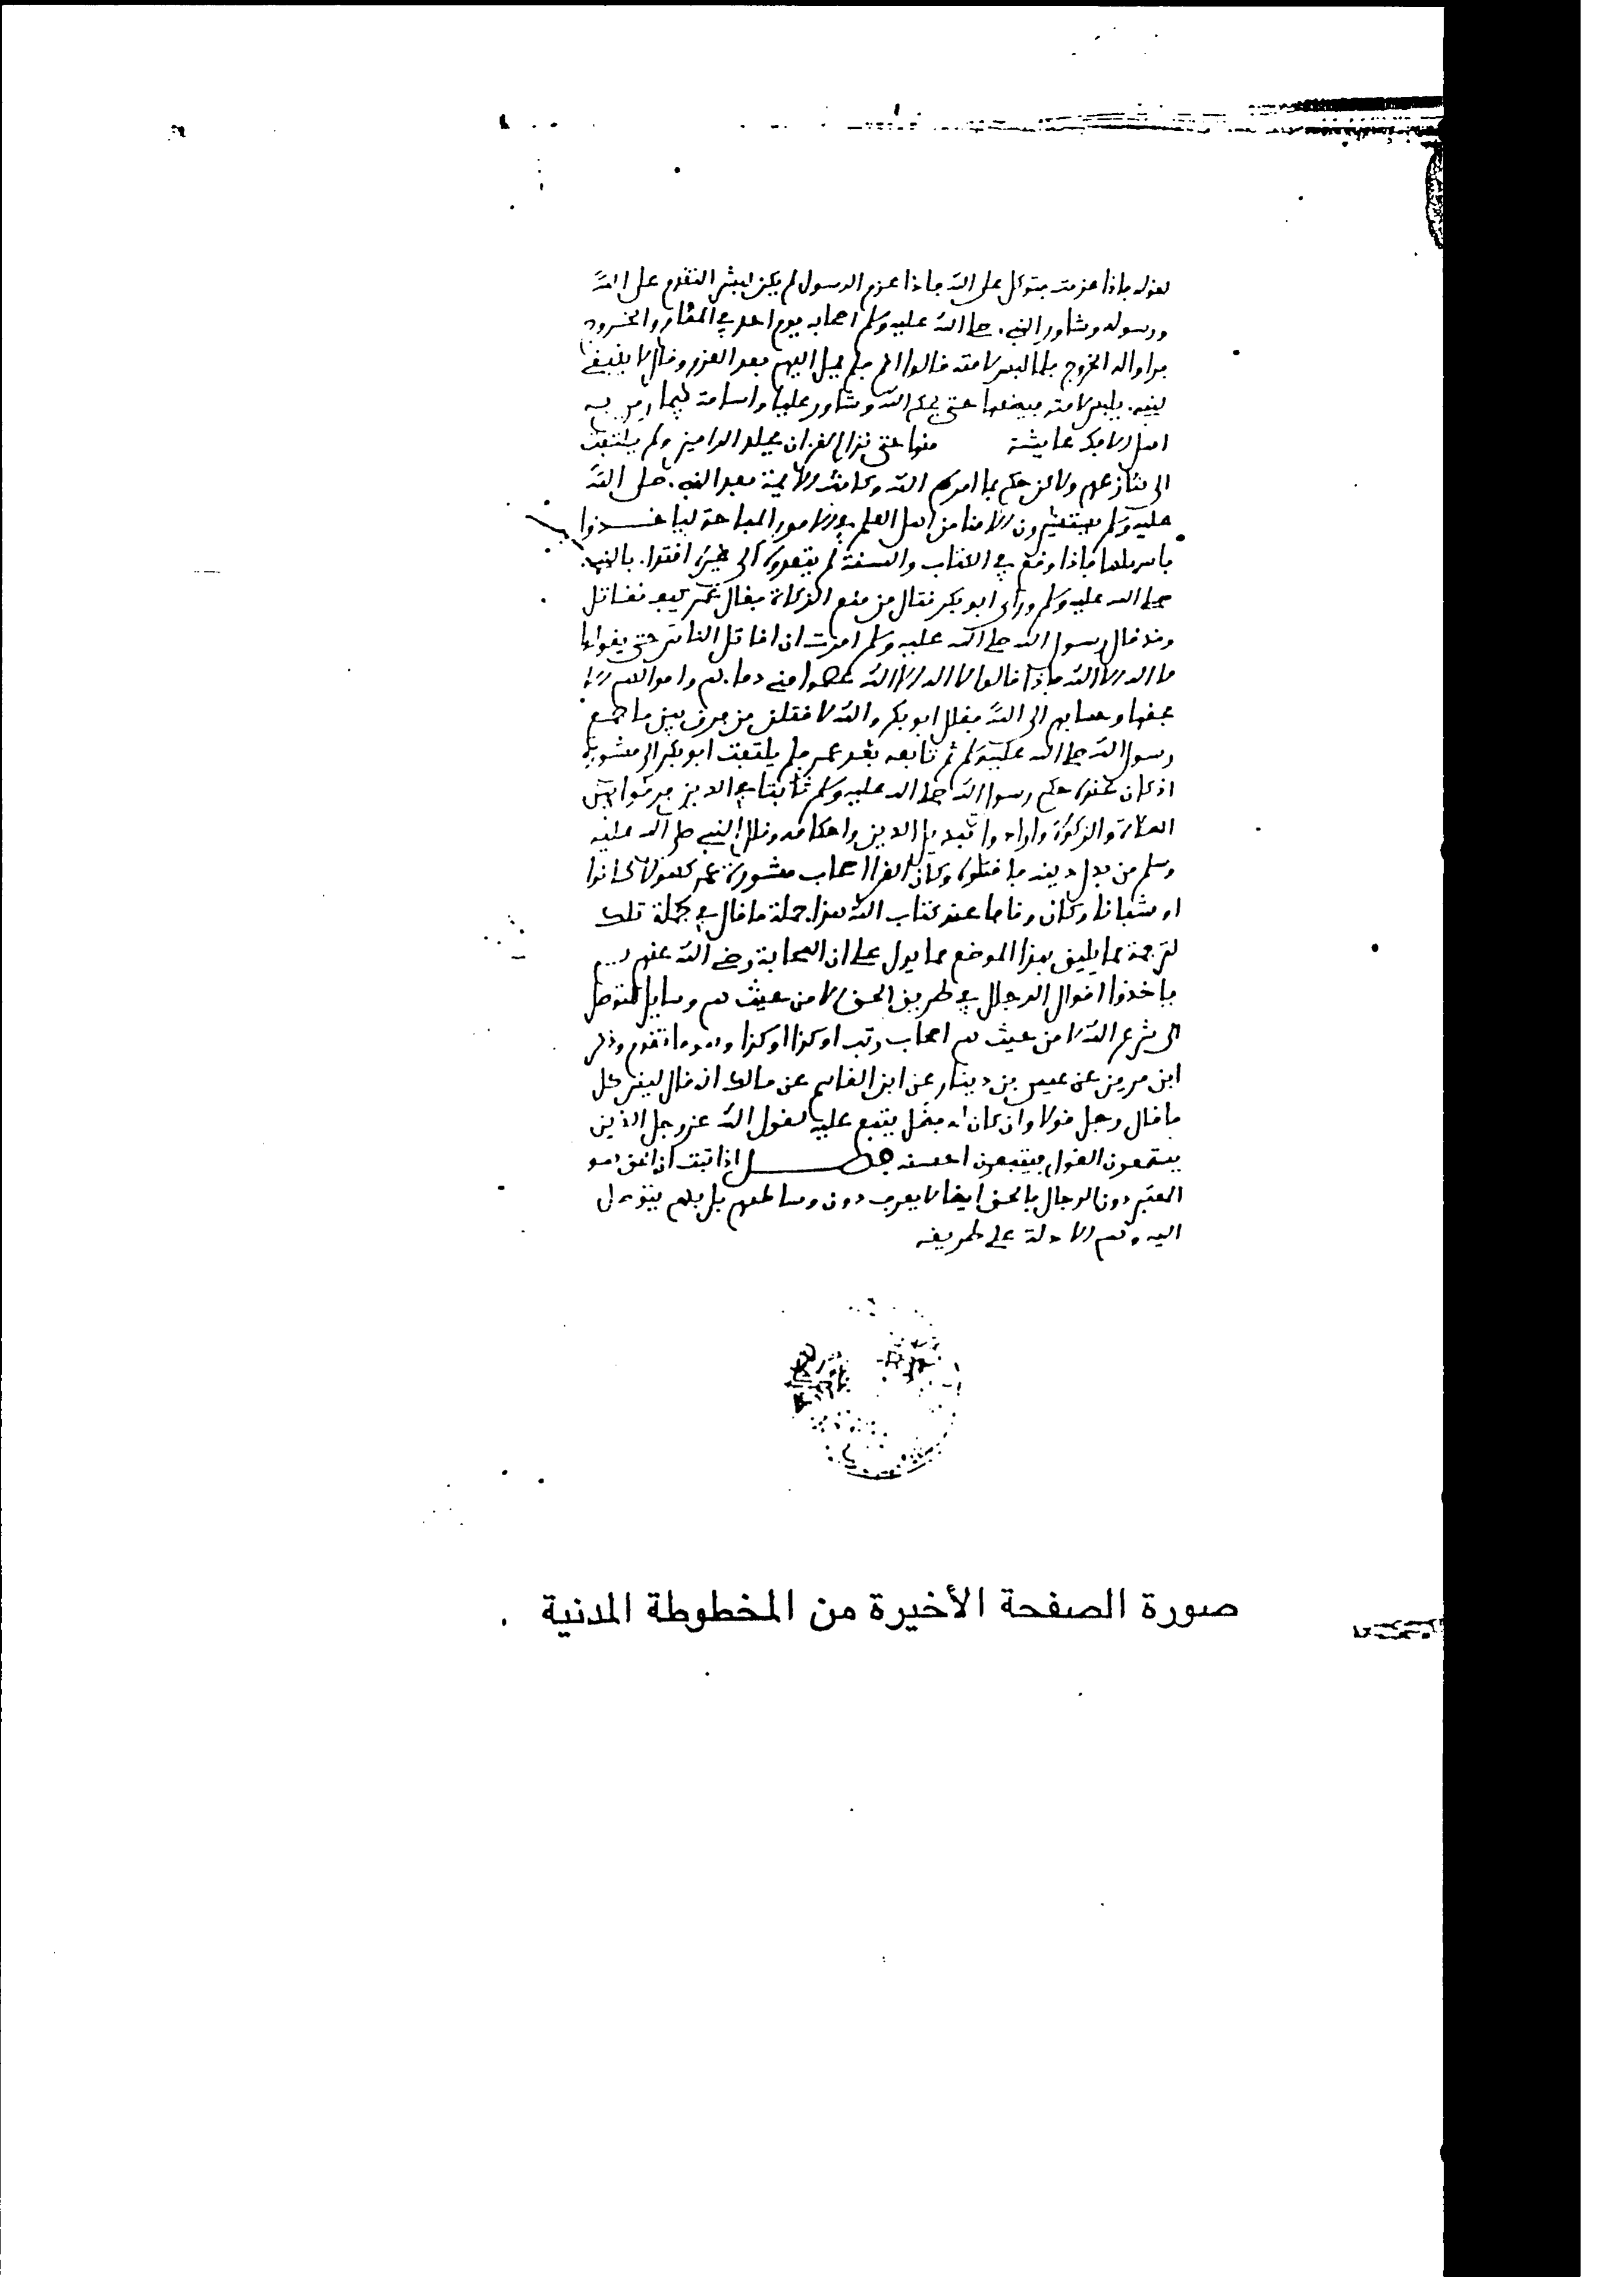 لقوله فاذا عزمت فتوكل على الله فاذا عزم الرسول لم يكن لبشر التقدم على الله
ورسوله وشاور النبي صلى الله عليه وسلم اصحابه يوم احد في المقام والخروج
فراوا له الخروج فلما لبس لامته قالوا اقم فلم يمل اليهم بعد العزم وقال لا ينبغي
لنبي يلبس لامته فيضعها حتى يحكم الله وشاور عليا واسامة فيما رمى به
اهل الافك عايشة فسمع منهما حتى نزل القران فجلد الرامين ولم يلتفت
الى تنازعهم ولاكن حكم بما امره الله وكانت الايمة بعد النبي صلى الله
عليه وسلم يستشيرون الامنا من اهل العلم في الامور المباحة لياخــذوا
باسهلها فاذا وقع في الكتاب والسنة لم يتعدوه الى غيره اقتدا بالنبي
صلى الله عليه وسلم وراى ابو بكر قتال من منع الزكاة فقال عمر كيف نقاتل
وقد قال رسول الله صلى الله عليه وسلم امرت ان اقاتل الناس حتى يقولوا
لا اله الا الله فاذا قالوا لا اله الا الله عصموا مني دماءهم واموالهم الا
بحقها وحسابهم الى الله فقال ابو بكر والله لاقاتلن من فرق بين ما جمع
رسول الله صلى الله عليه وسلم ثم تابعه بعد عمر فلم يلتفت ابو بكر الى مشورة
اذ كان عنده حكم رسول الله صلى الله عليه وسلم ثابتا في الذين فرقوا بين
الصلاة والزكوة وارادوا تبديل الدين واحكامه وقال النبي صلى الله عليه
وسلم من بدل دينه فاقتلوه وكان القرا اصحاب مشورة عمر كهولا كانوا
او شبانا وكان وقافا عند كتاب الله هذا جملة ما قال في جملة تلك
لترجمة مما يليق بهذا الموضع مما يدل على ان الصحابة رضي الله عنهم لم
ياخذوا اقوال الرجال في طريق الحق الا من حيث هم وسايل للتوصل
الى شرع الله لا من حيث هم اصحاب رتب او كذا او كذا وهو ما تقدم وذكر
ابن مزين عن عيسى بن دينار عن ابن القاسم عن مالك انه قال ليس كل
ما قال رجل قولا وان كان له فضل يتبع عليه لقول الله عز وجل الذين
يستمعون القول فيتبعون احسنه فصــــل اذا ثبت ان الحق هو
المعتبر دون الرجال فالحق ايضا لا يعرف دون وسايطهم بل بهم يتوصل
اليه وهم الادلة على طريقه
صورة الصفحة الأخيرة من المخطوطة المدنية .